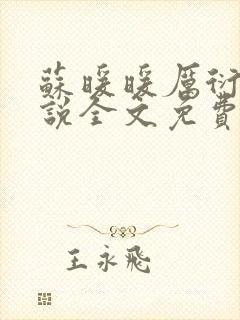 蘇暖暖厲衍
說全文免費
王永飛